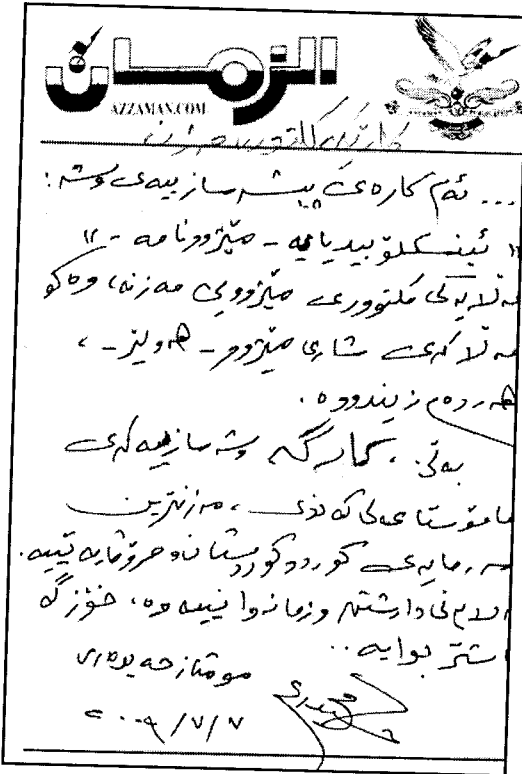 الزمان
AZZAMAN.COM
... ئەم کارەی پیشەسازییەی وشە:
" ئینسکلۆپیدیایە - مێژوونامە - "
قەڵایەکی کلتووری مێژوویی مەزنە، وەکو
قەڵاکەی شاری مێژوو - هەولێر - ،
هەردەم زیندووە.
بەڵێ، کارگە وشەسازییەکەی
مامۆستا عەلی کەندی، مەزنترین
سەرمایەی کوردو کوردستان و مرۆڤایەتییە.
داڕشتن و زمانەوانییەوە، خۆزگە
بوایە..
مومتاز حەیدەری
٢٠٠٩/٧/٧